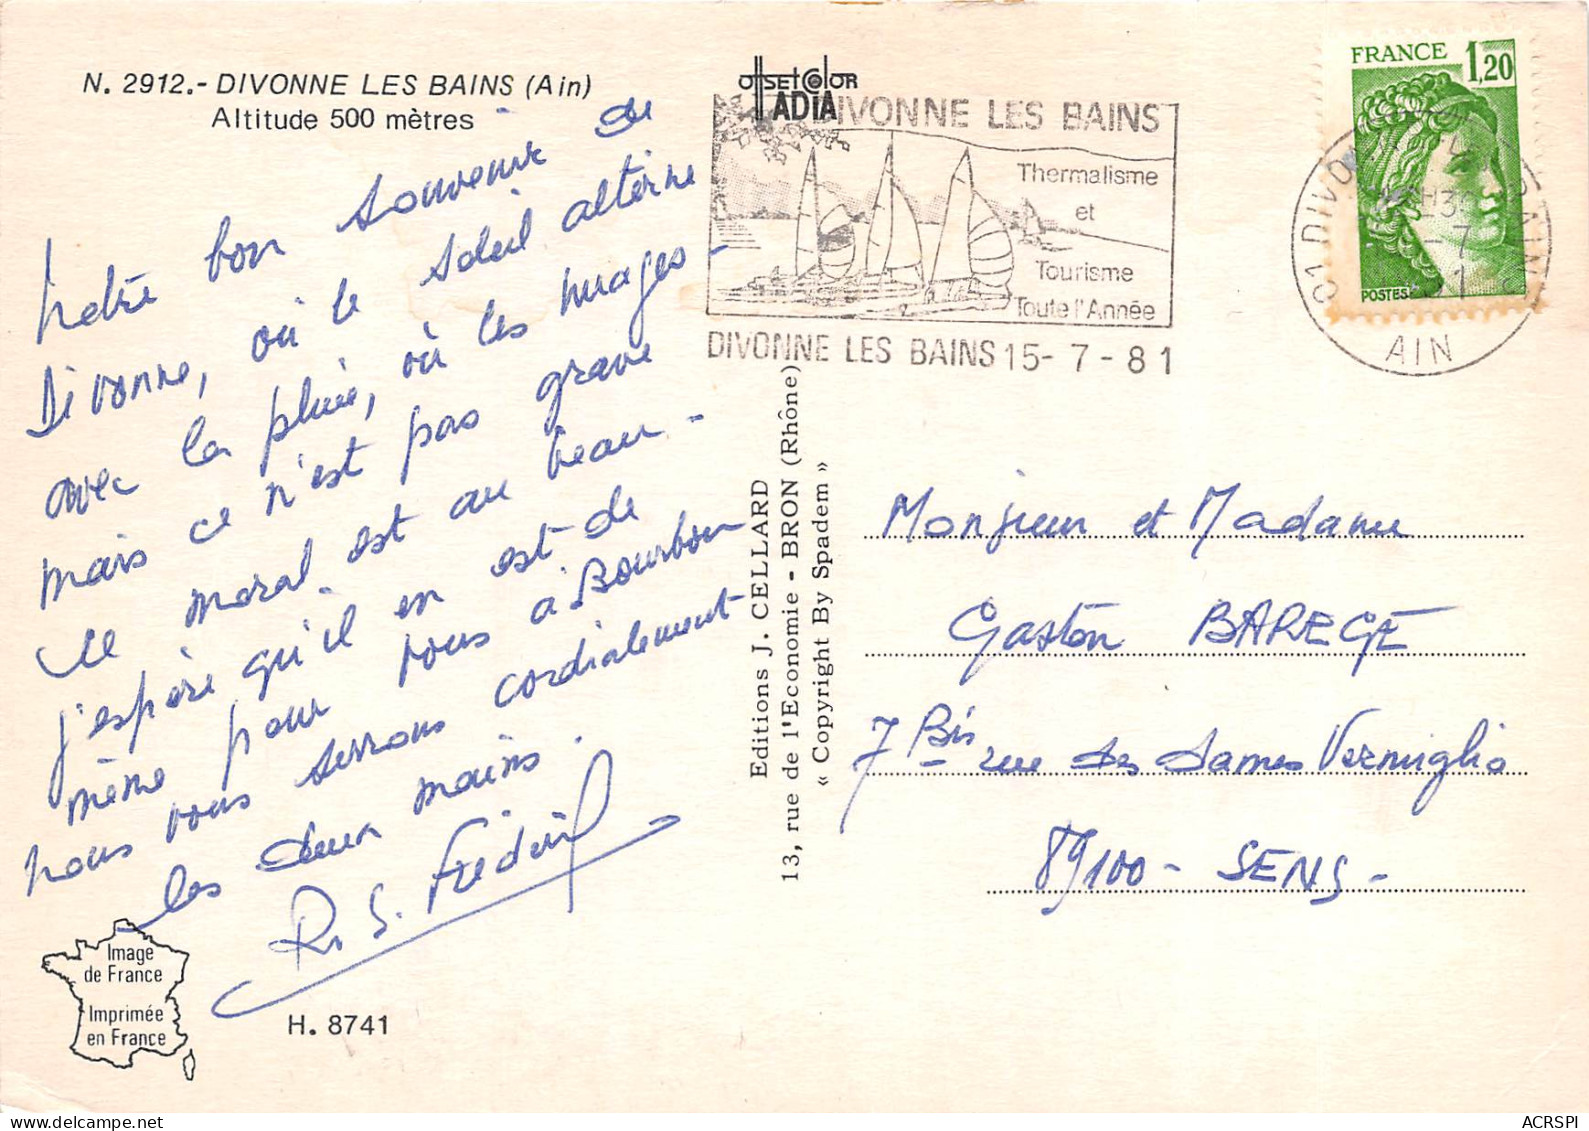 N. 2912.- DIVONNE LES BAINS (Ain)
Altitude 500 mètres
Notre bon souvenir de
Divonne, où le soleil alterne
avec la pluie, où les nuages -
mais ce n'est pas grave
le moral est au beau -
j'espère qu'il en est de
même pour vous à Bourbon
nous vous serrons cordialement
les deux mains.
Image
de France
Imprimée
en France
H. 8741
OffsetColor
ADIA
DIVONNE LES BAINS
Thermalisme
et
Tourisme
Toute l'Année
DIVONNE LES BAINS 15- 7 - 81
FRANCE 1,20
POSTES
01 DIVONNE
AIN
Editions J. CELLARD
13, rue de l'Economie - BRON (Rhône)
« Copyright By Spadem »
Monsieur et Madame
Gaston BAREGE
7 Bis rue des dames Vermiglio
89100 - SENS -
ACRSPI